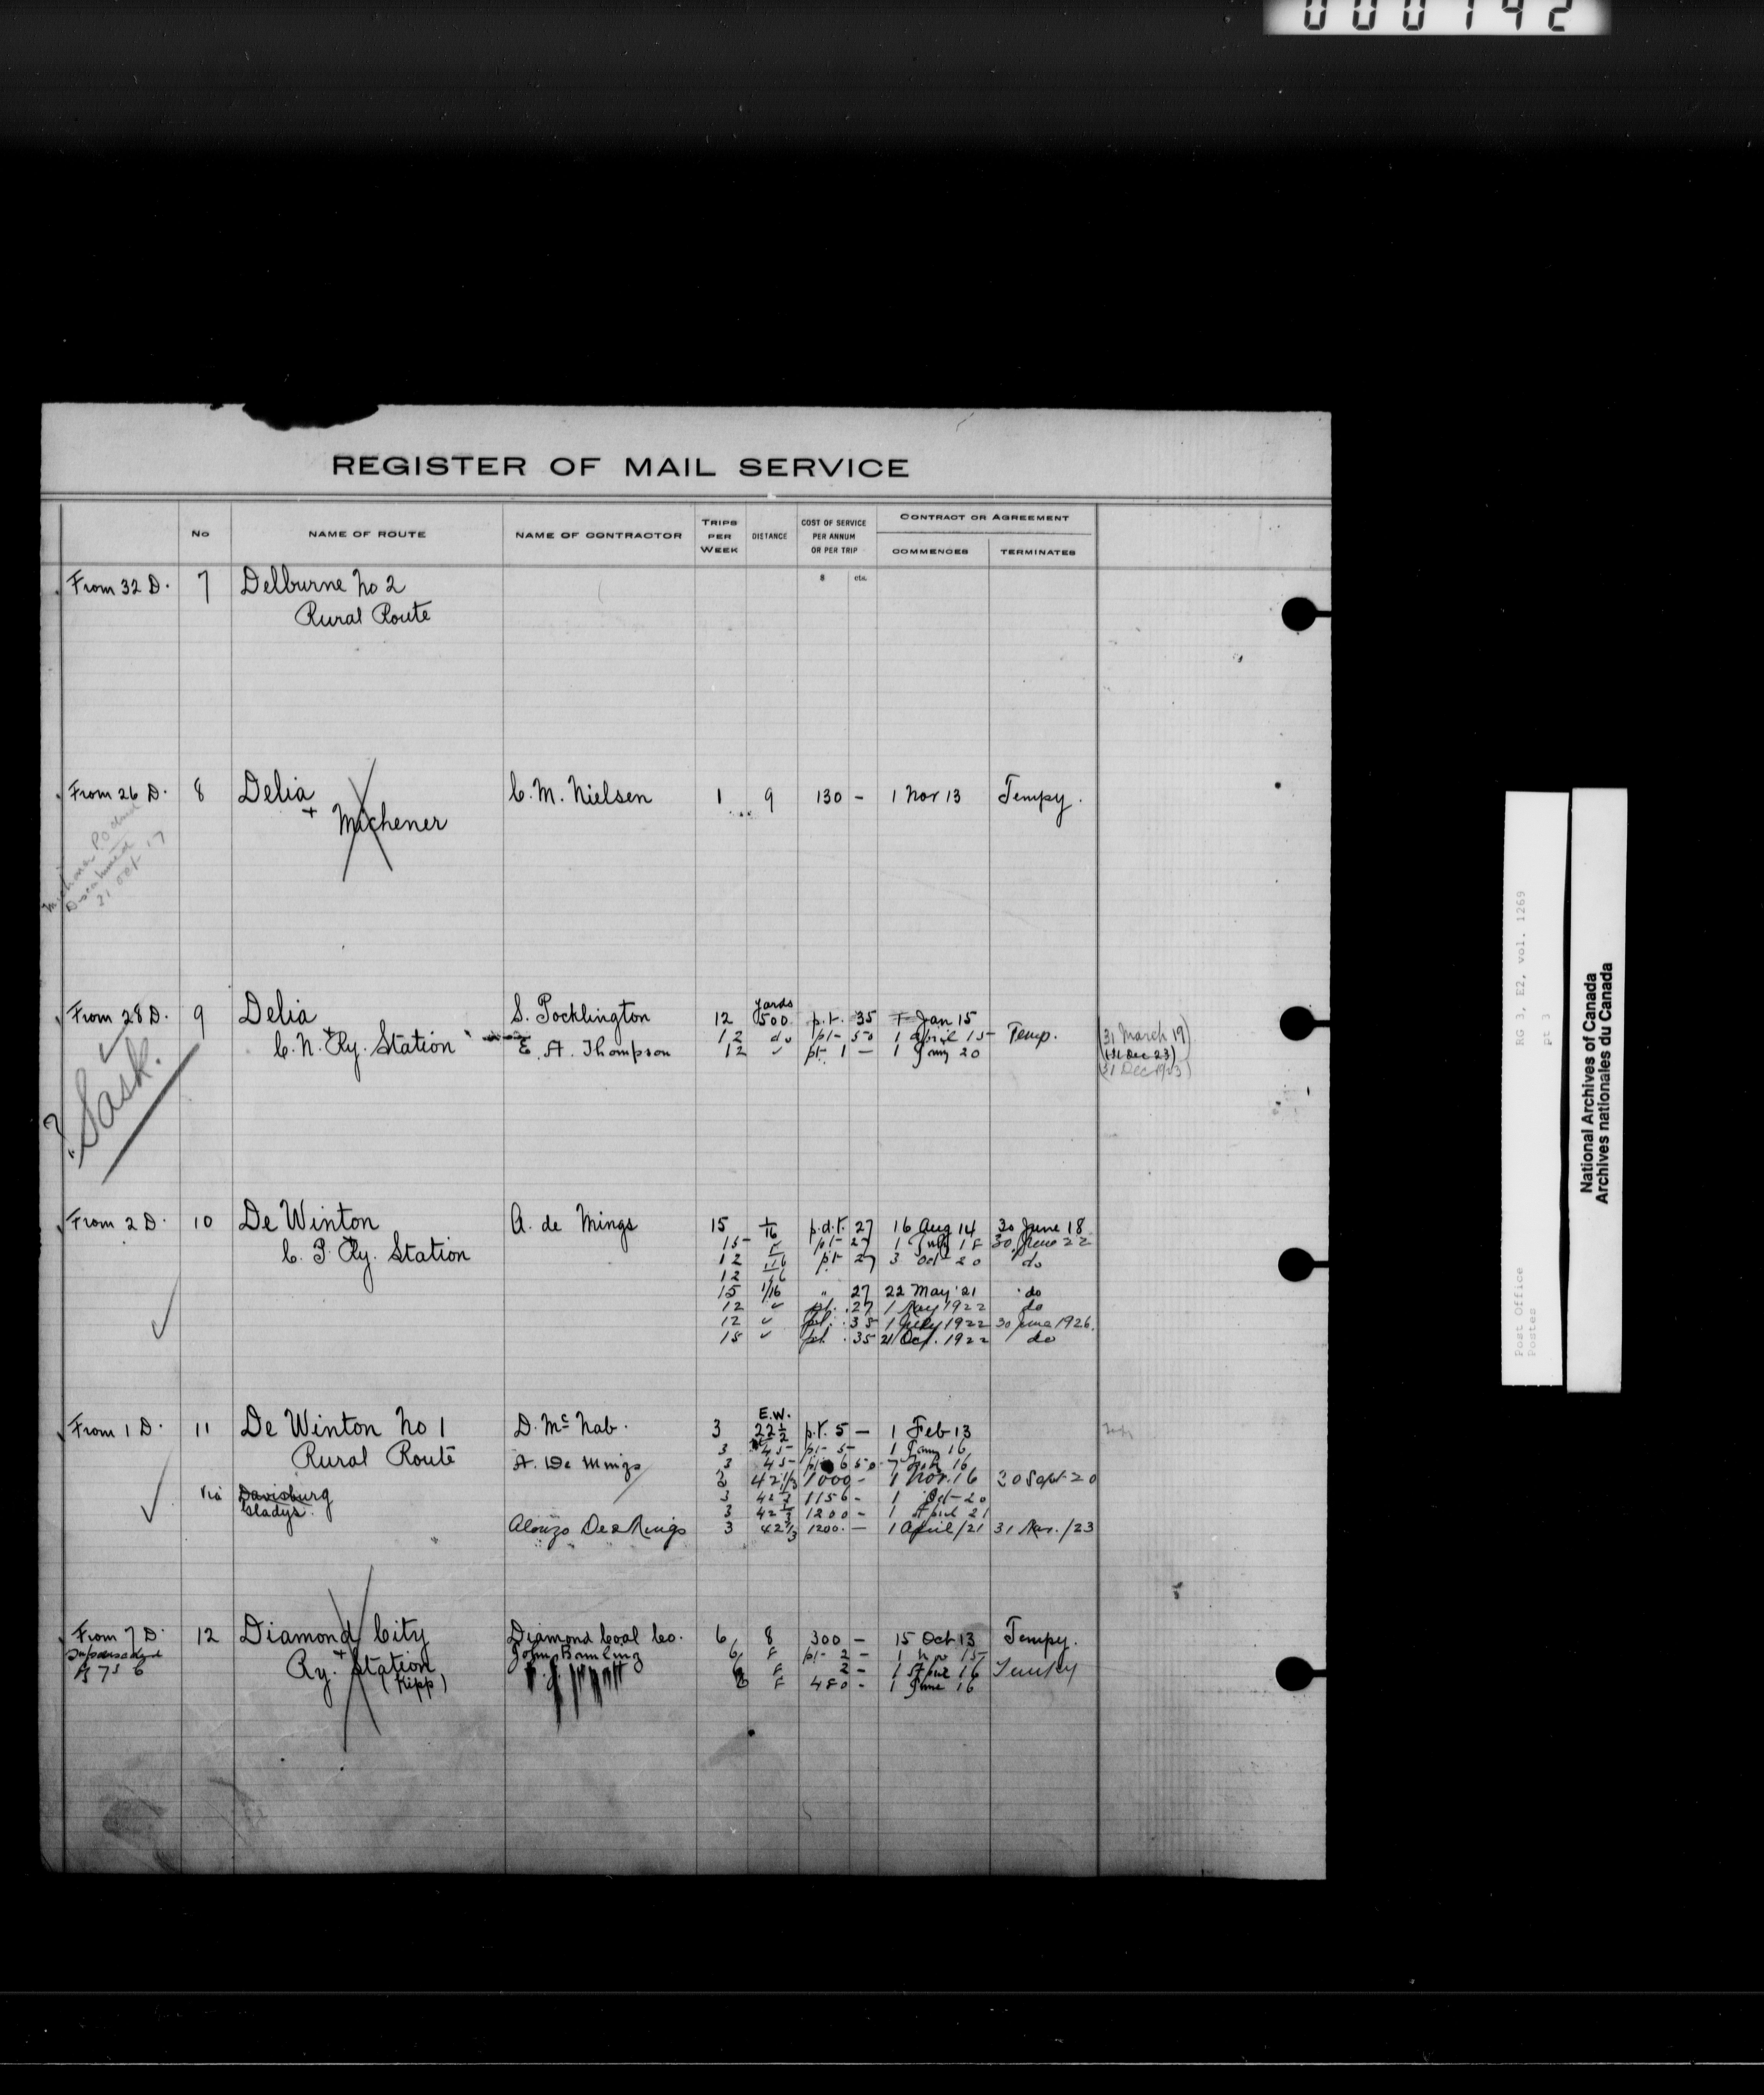 000142
REGISTER OF MAIL SERVICE
No NAME OF ROUTE NAME OF CONTRACTOR TRIPS PER WEEK DISTANCE COST OF SERVICE PER ANNUM OR PER TRIP CONTRACT OR AGREEMENT
COMMENCES TERMINATES
$ cts.
From 32 D. 7 Delburne No 2
Rural Route
From 26 D. 8 Delia C. M. Nielsen 1 9 130 – 1 Nov 13 Tempy.
+ Michener
Michener P.O.
31 Oct 17
yards
From 28 D. 9 Delia S. Pocklington 12 500 p.t. 35 1 Jan 15
+
C. N. Ry. Station 12 do pt- 50 1 April 15 Temp. (31 March 19)
E. A. Thompson 12 " pt- 1 – 1 Jany 20 (31 Dec 23)
(31 Dec 1923)
? Sask.
From 2 D. 10 De Winton A. de Mings 15 1/16 p.d.t. 27 16 Aug 14 30 June 18
+
C. P. Ry. Station 15 pt- 27 1 July 18 30 June 22
12 1/16 pt- 27 3 Oct 20 do
12 1/16
15 1/16 " 27 22 May '21 do
12 " pt. .27 1 May 1922 do
12 " pt. .35 1 July 1922 30 June 1926.
18 " pt. .35 21 Oct. 1922 do
E.W.
From 1 D. 11 De Winton No 1 D. McNab. 3 22 1/2 p.t. 5 – 1 Feb 13
Rural Route 3 45 pt- 5- 1 Jany 16
A. De Mings 3 45 pt- 6 50 16
3 42 1/3 1000 - 1 Nov. 16 30 Sept 20
Via Davisburg 3 42 1/3 1156 - 1 Oct-20
Gladys. 3 42 1/3 1200 - 1 April 21
Alonzo De Mings 3 42 1/3 1200. – 1 April/21 31 Mar./23
From 7 D. 12 Diamond City Diamond Coal Co. 6 8 300 – 15 Oct 13 Tempy.
Superseded + John 6 8 pt- 2 – 1 Nov 15
Ry. Station 8 2 – 1 April 16 Tempy
(Kipp) 6 8 480 - 1 June 16
RG 3, E2, vol. 1269
pt 3
Post Office
Postes
National Archives of Canada
Archives nationales du Canada